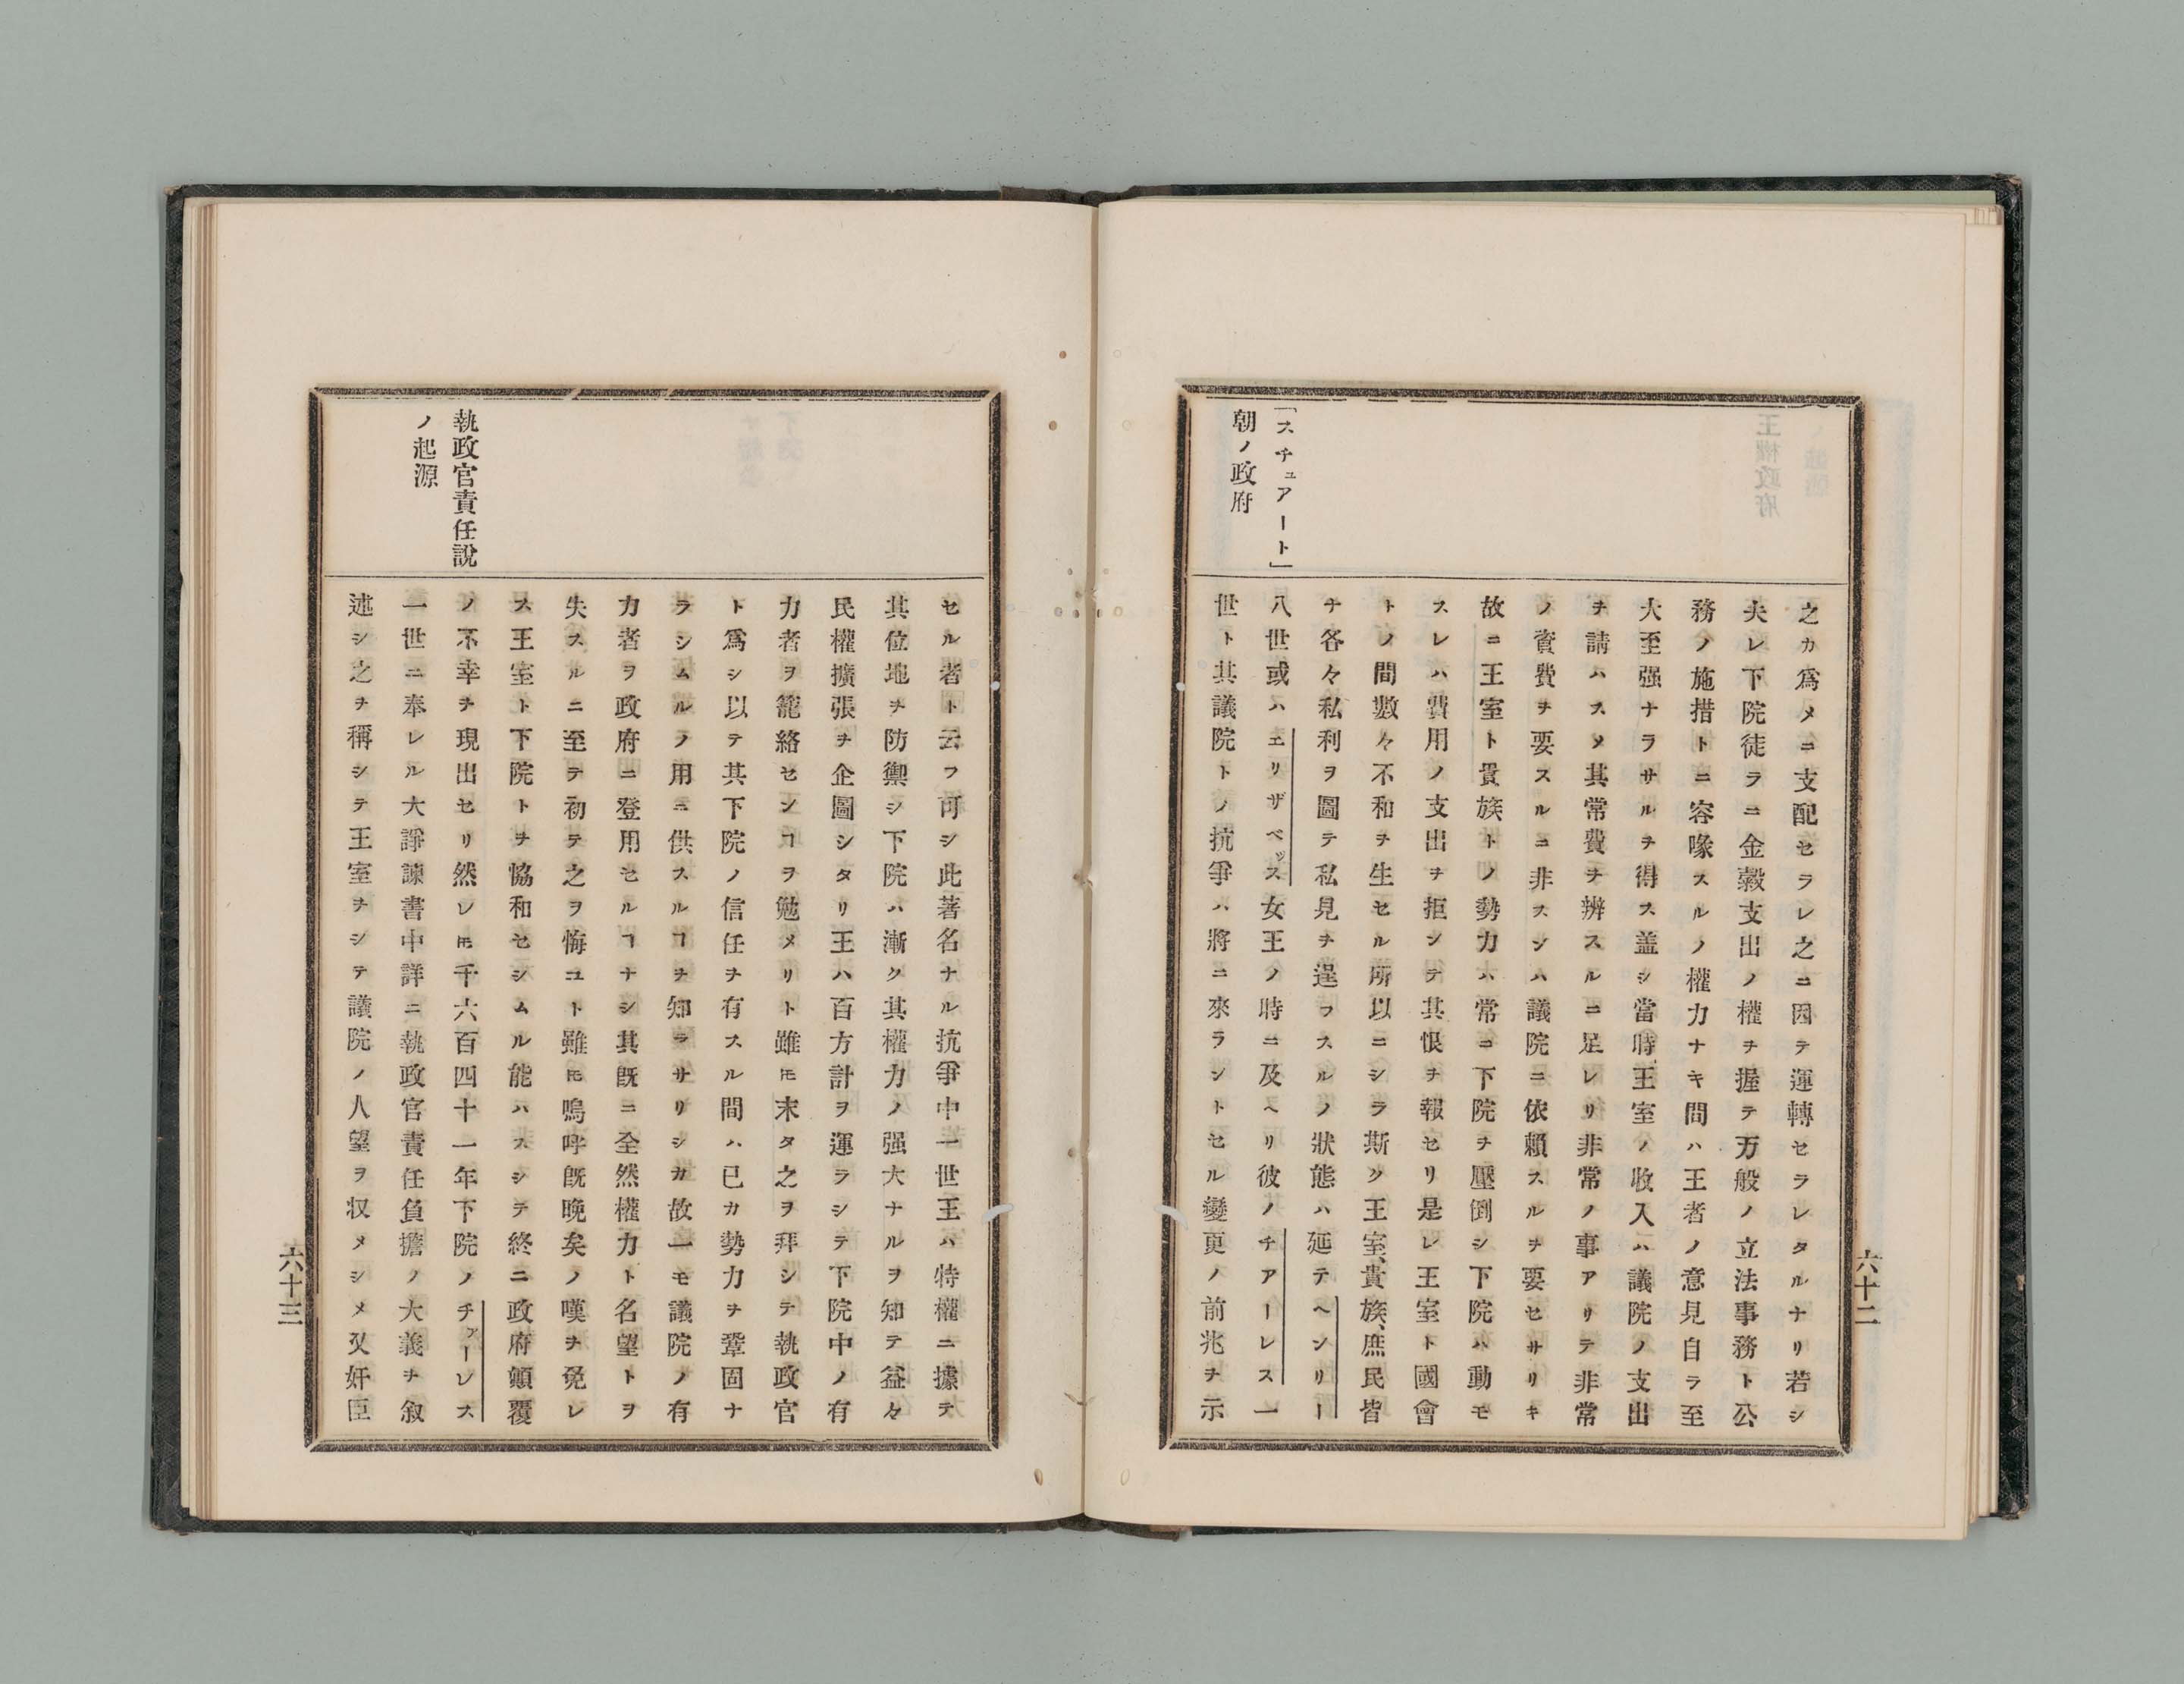 「スチュアート」
朝ノ政府
之カ爲メニ支配セラレ之ニ因テ運轉セラレタルナリ若シ
夫レ下院徒ラニ金穀支出ノ權ヲ握テ万般ノ立法事務ト公
務ノ施措トニ容喙スルノ權力ナキ間ハ王者ノ意見自ラ至
大至强ナラサルヲ得ス盖シ當時王室ノ收入ハ議院ノ支出
ヲ請ハスメ其常費ヲ辨スルニ足レリ非常ノ事アリテ非常
ノ資費ヲ要スルニ非スンハ議院ニ依賴スルヲ要セサリキ
故ニ王室ト貴族トノ勢力ハ常ニ下院ヲ壓倒シ下院ハ動モ
スレハ費用ノ支出ヲ拒ンテ其恨ヲ報セリ是レ王室ト國會
トノ間數々不和ヲ生セル所以ニシラ斯ク王室、貴族、庶民皆
ヲ各々私利ヲ圖テ私見ヲ逞フスルノ狀態ハ延テヘンリー
八世或ハエリザベッス女王ノ時ニ及ヘリ彼ノチアーレス一
世ト其議院トノ抗爭ハ將ニ來ラントセル變更ノ前兆ヲ示
六十二
執政官責任說
ノ起源
セル者ト云フ可シ此著名ナル抗爭中一世王ハ特權ニ據テ
其位地ヲ防禦シ下院ハ漸ク其權力ノ强大ナルヲ知テ益々
民權擴張ヲ企圖シタリ王ハ百方計ヲ運ラシテ下院中ノ有
力者ヲ籠絡センヿヲ勉メリト雖𪜈末タ之ヲ拜シテ執政官
ト爲シ以テ其下院ノ信任ヲ有スル間ハ已カ勢力ヲ鞏固ナ
ラシムルノ用ニ供スルヿヲ知ラサリシカ故一モ議院ノ有
力者ヲ政府ニ登用セルヿナシ其既ニ全然權力ト名望トヲ
失スルニ至テ初テ之ヲ悔ユト雖𪜈嗚呼既晚矣ノ嘆ヲ免レ
ス王室ト下院トヲ恊和セシムル能ハスシテ終ニ政府顚覆
ノ不幸ヲ現出セリ然レ𪜈千六百四十一年下院ノチァーレス
一世ニ奉レル大諍諫書中詳ニ執政官責任負擔ノ大義ヲ叙
述シ之ヲ稱シテ王室ヲシテ議院ノ人望ヲ収メシメ又奸臣
六十三